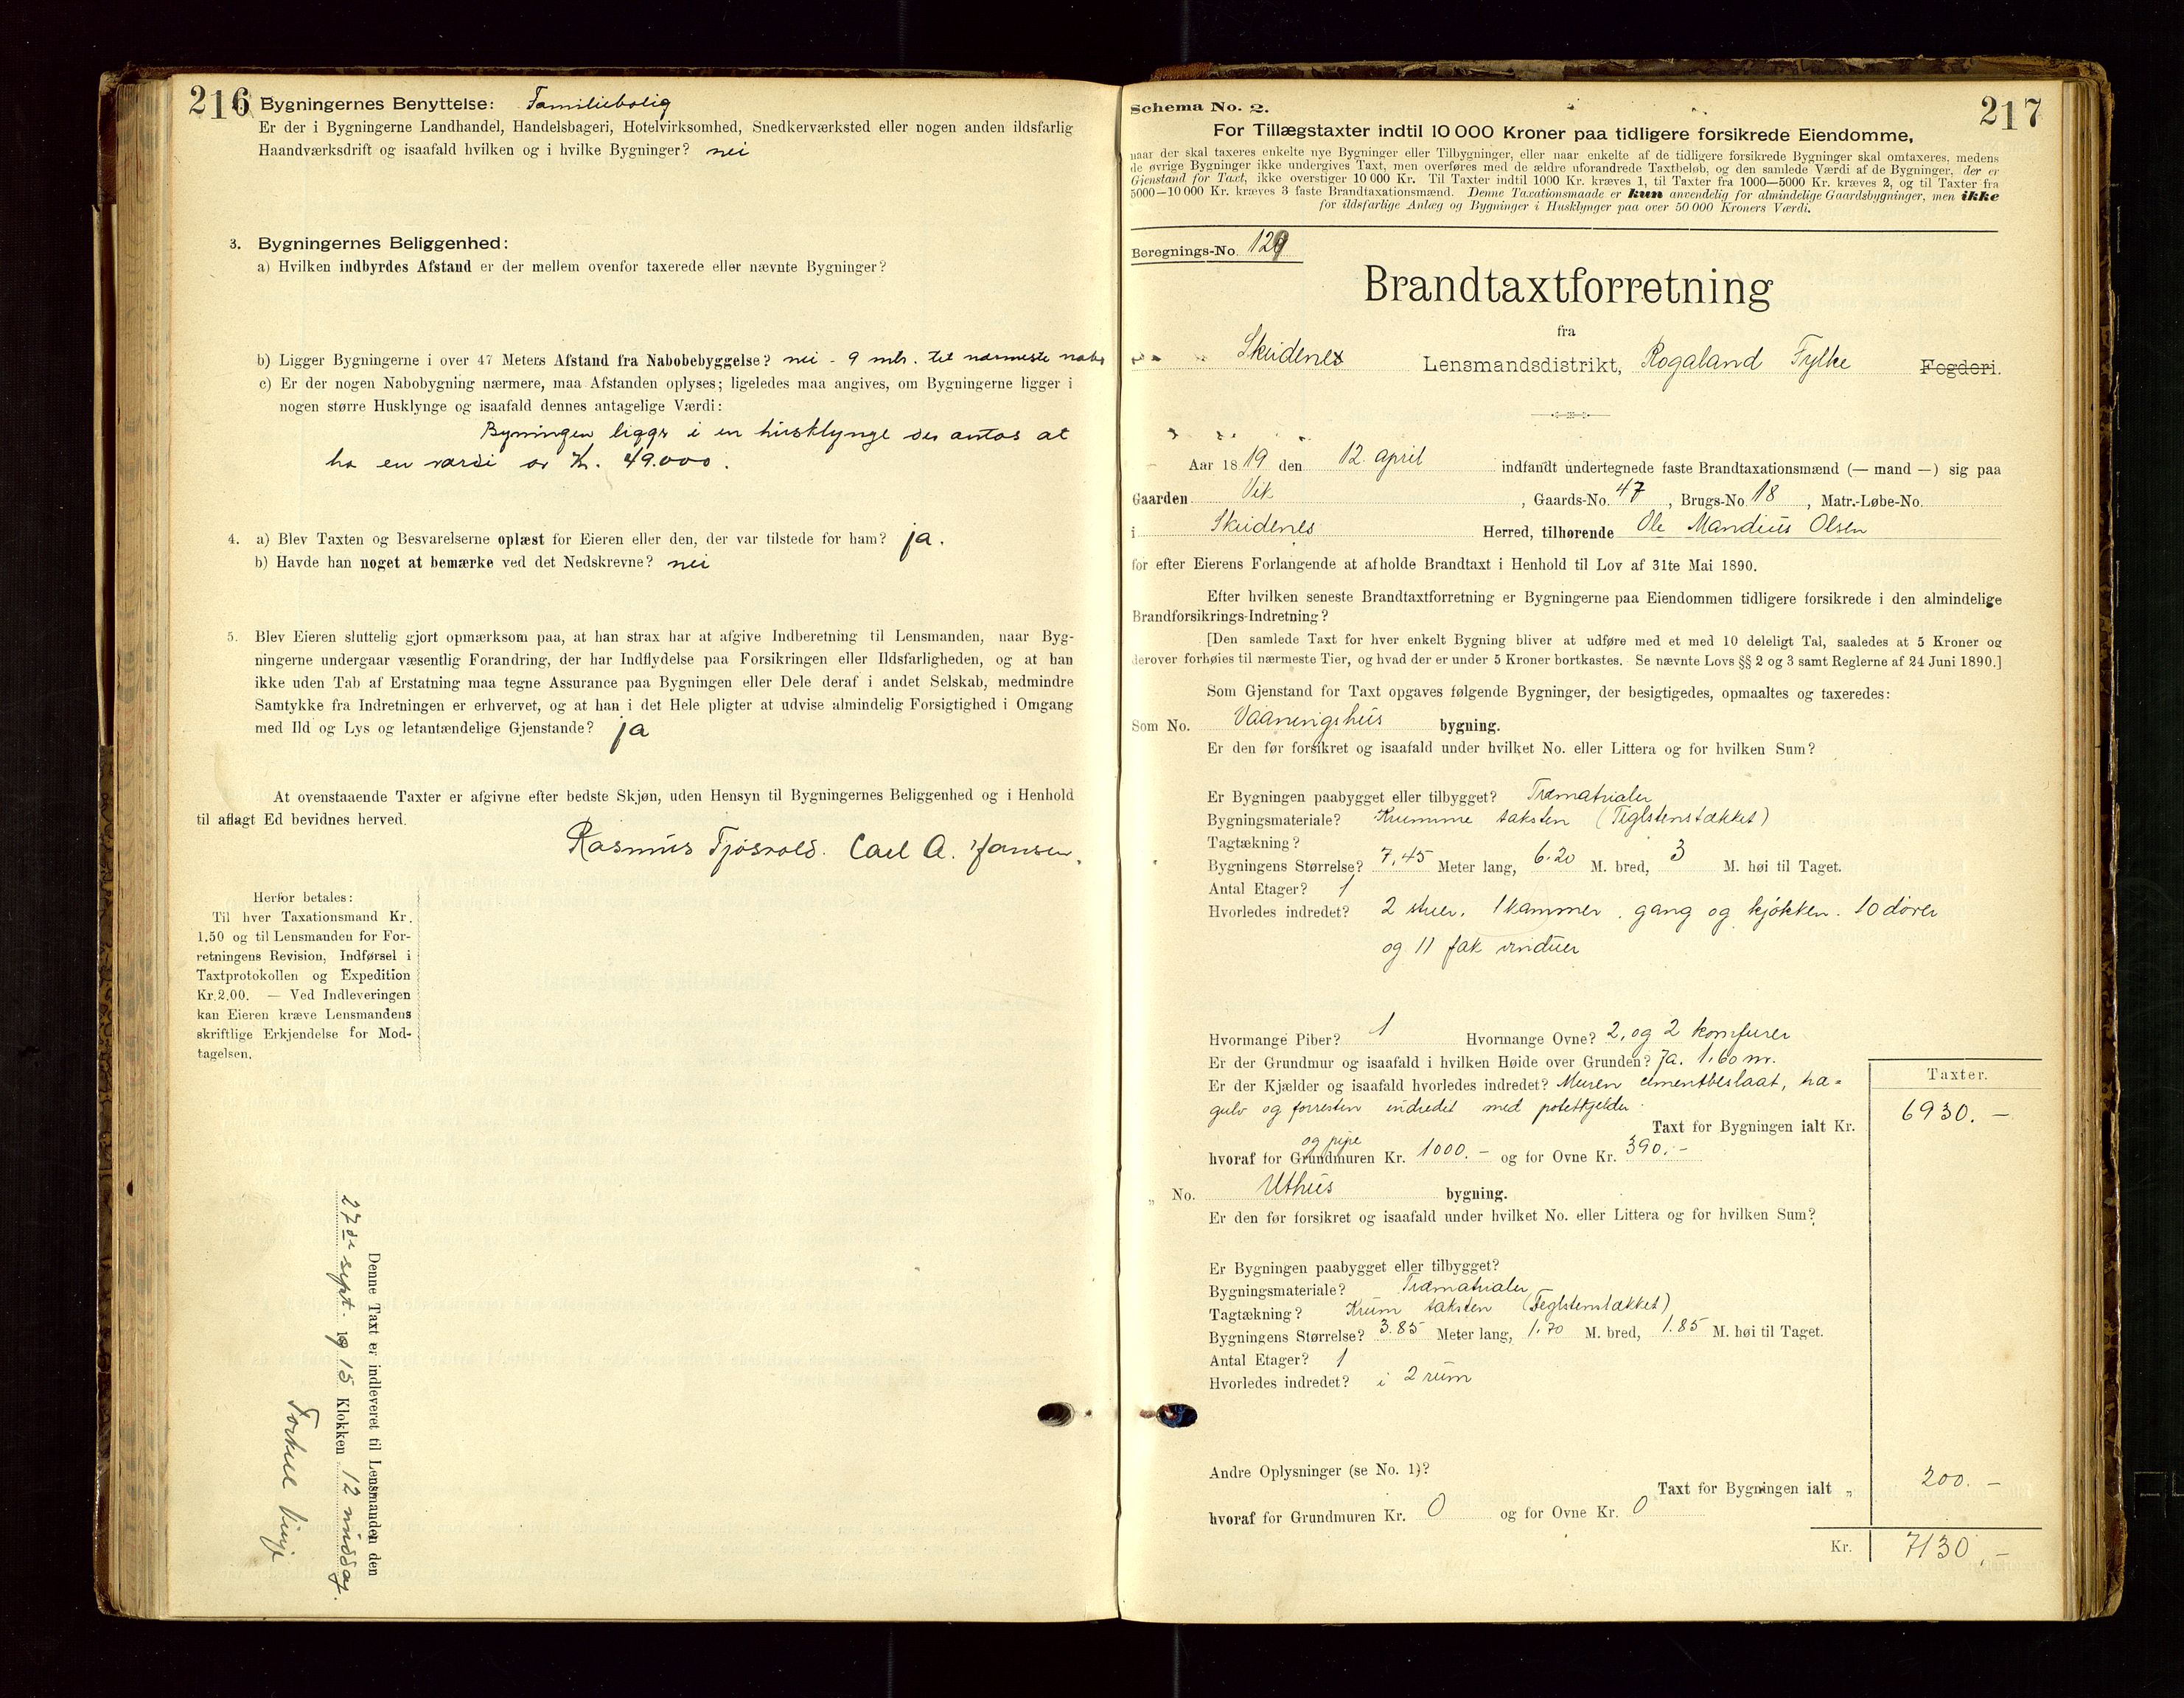 216
Bygningernes Benyttelse: Familiebolig
Er der i Bygningerne Landhandel, Handelsbageri, Hotelvirksomhed, Snedkerværksted eller nogen anden ildsfarlig
Haandværksdrift og isaafald hvilken og i hvilke Bygninger? nei
3. Bygningernes Beliggenhed:
a) Hvilken indbyrdes Afstand er der mellem ovenfor taxerede eller nævnte Bygninger?
b) Ligger Bygningerne i over 47 Meters Afstand fra Nabobebyggelse? nei - 9 mtr. til nærmeste nabo
c) Er der nogen Nabobygning nærmere, maa Afstanden oplyses; ligeledes maa angives, om Bygningerne ligger i
nogen større Husklynge og isaafald dennes antagelige Værdi:
Bygningen ligger i en husklynge der antas at
ha en værdi av Kr. 49.000.
4. a) Blev Taxten og Besvarelserne oplæst for Eieren eller den, der var tilstede for ham? ja.
b) Havde han noget at bemærke ved det Nedskrevne? nei
5. Blev Eieren sluttelig gjort opmærksom paa, at han strax har at afgive Indberetning til Lensmanden, naar Byg-
ningerne undergaar væsentlig Forandring, der har Indflydelse paa Forsikringen eller Ildsfarligheden, og at han
ikke uden Tab af Erstatning maa tegne Assurance paa Bygningen eller Dele deraf i andet Selskab, medmindre
Samtykke fra Indretningen er erhvervet, og at han i det Hele pligter at udvise almindelig Forsigtighed i Omgang
med Ild og Lys og letantændelige Gjenstande? ja
At ovenstaaende Taxter er afgivne efter bedste Skjøn, uden Hensyn til Bygningernes Beliggenhed og i Henhold
til aflagt Ed bevidnes herved.
Rasmus Tjøsvold. Carl A. Jansen.
Herfor betales:
Til hver Taxationsmand Kr.
1.50 og til Lensmanden for For-
retningens Revision, Indførsel i
Taxtprotokollen og Expedition
Kr. 2.00. — Ved Indleveringen
kan Eieren kræve Lensmandens
skriftlige Erkjendelse for Mod-
tagelsen.
Denne Taxt er indleveret til Lensmanden den
27de sept. 1915 Klokken 12 middag.
Torkell Vinje
217
Schema No. 2.
For Tillægstaxter indtil 10 000 Kroner paa tidligere forsikrede Eiendomme,
naar der skal taxeres enkelte nye Bygninger eller Tilbygninger, eller naar enkelte af de tidligere forsikrede Bygninger skal omtaxeres, medens
de øvrige Bygninger ikke undergives Taxt, men overføres med de ældre uforandrede Taxtbeløb, og den samlede Værdi af de Bygninger, der er
Gjenstand for Taxt, ikke overstiger 10 000 Kr. Til Taxter indtil 1000 Kr. kræves 1, til Taxter fra 1000—5000 Kr. kræves 2, og til Taxter fra
5000—10 000 Kr. kræves 3 faste Brandtaxationsmænd. Denne Taxationsmaade er kun anvendelig for almindelige Gaardsbygninger, men ikke
for ildsfarlige Anlæg og Bygninger i Husklynger paa over 50 000 Kroners Værdi.
Beregnings-No. 129
Brandtaxtforretning
fra
Skudenes Lensmandsdistrikt, Rogaland Fylke Fogderi.
Aar 1819 den 12. april indfandt undertegnede faste Brandtaxationsmænd (— mand —) sig paa
Gaarden Vik, Gaards-No. 47, Brugs-No. 18, Matr.-Løbe-No.
i Skudenes Herred, tilhørende Ole Mandius Olsen
for efter Eierens Forlangende at afholde Brandtaxt i Henhold til Lov af 31te Mai 1890.
Efter hvilken seneste Brandtaxtforretning er Bygningerne paa Eiendommen tidligere forsikrede i den almindelige
Brandforsikrings-Indretning?
[Den samlede Taxt for hver enkelt Bygning bliver at udføre med et med 10 deleligt Tal, saaledes at 5 Kroner og
derover forhøies til nærmeste Tier, og hvad der er under 5 Kroner bortkastes. Se nævnte Lovs §§ 2 og 3 samt Reglerne af 24 Juni 1890.]
Som Gjenstand for Taxt opgaves følgende Bygninger, der besigtigedes, opmaaltes og taxeredes:
Som No. Vaaningshus bygning.
Er den før forsikret og isaafald under hvilket No. eller Littera og for hvilken Sum?
Er Bygningen paabygget eller tilbygget? Træmatrialer
Bygningsmateriale? Krumme taksten (Teglstenstækket)
Tagtækning?
Bygningens Størrelse? 7,45 Meter lang, 6.20 M. bred, 3 M. høi til Taget.
Antal Etager? 1
Hvorledes indredet? 2 stuer, 1 kammer, gang og kjøkken. 10 dører
og 11 fak vinduer
Hvormange Piber? 1 Hvormange Ovne? 2, og 2 komfurer
Er der Grundmur og isaafald i hvilken Høide over Grunden? Ja. 1.60 m.
Er der Kjælder og isaafald hvorledes indredet? Muren cementbeslaat,
gulv og forresten indredet med potetkjelder.
Taxter.
Taxt for Bygningen ialt Kr. 6930.—
og pipe
hvoraf for Grundmuren Kr. 1000.— og for Ovne Kr. 390.—
„ No. Uthus bygning.
Er den før forsikret og isaafald under hvilket No. eller Littera og for hvilken Sum?
Er Bygningen paabygget eller tilbygget?
Bygningsmateriale? Træmatrialer
Tagtækning? Krum taksten (Teglstenstækket)
Bygningens Størrelse? 3.85 Meter lang, 1.70 M. bred, 1.85 M. høi til Taget.
Antal Etager? 1
Hvorledes indredet? i 2 rum
Andre Oplysninger (se No. 1)?
Taxt for Bygningen ialt „ 200.—
hvoraf for Grundmuren Kr. 0 og for Ovne Kr. 0
Kr. 7130.—